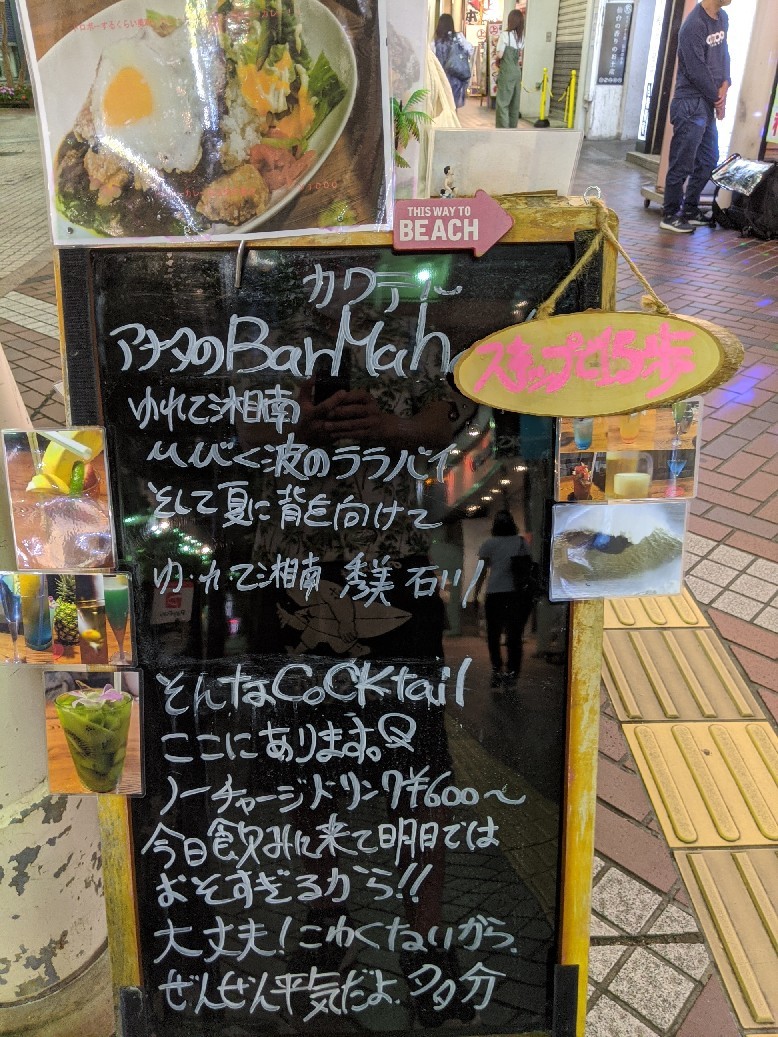 THIS WAY TO
BEACH
カクテル
アナタのBarMah
スキップで15歩
ゆれて湘南
ひびく波のララバイ
そして夏に背を向けて
ゆ・れて湘南 秀美 石川
そんなCoCKtail
ここにあります。
ノーチャージドリンク¥600〜
今日飲みに来て明日では
おそすぎるから!!
大丈夫!こわくないから.
ぜんぜん平気だよ.多分